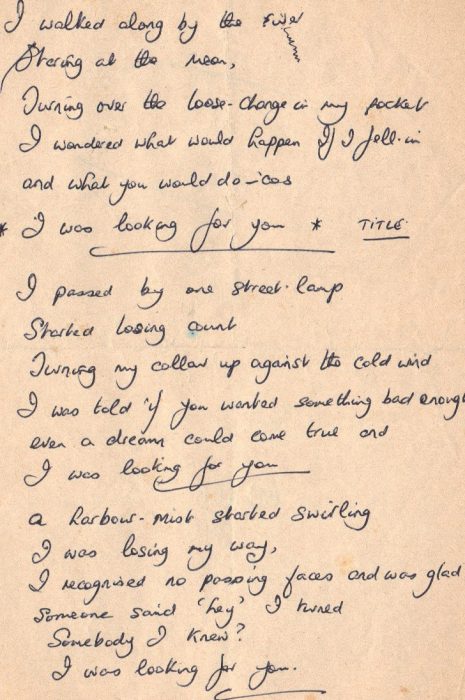 I walked along by the river
Staring at the moon,
Turning over the loose-change in my pocket
I wondered what would happen If I fell-in
and what you would do - 'cos
* I was looking for you * TITLE:
I passed by one street-lamp
Started losing count
Turning my collar up against the cold wind
I was told if you wanted something bad enough
even a dream could come true and
I was looking for you
a harbour-mist started swirling
I was losing my way,
I recognised no passing faces and was glad
someone said 'hey' I turned
Somebody I knew?
I was looking for you.